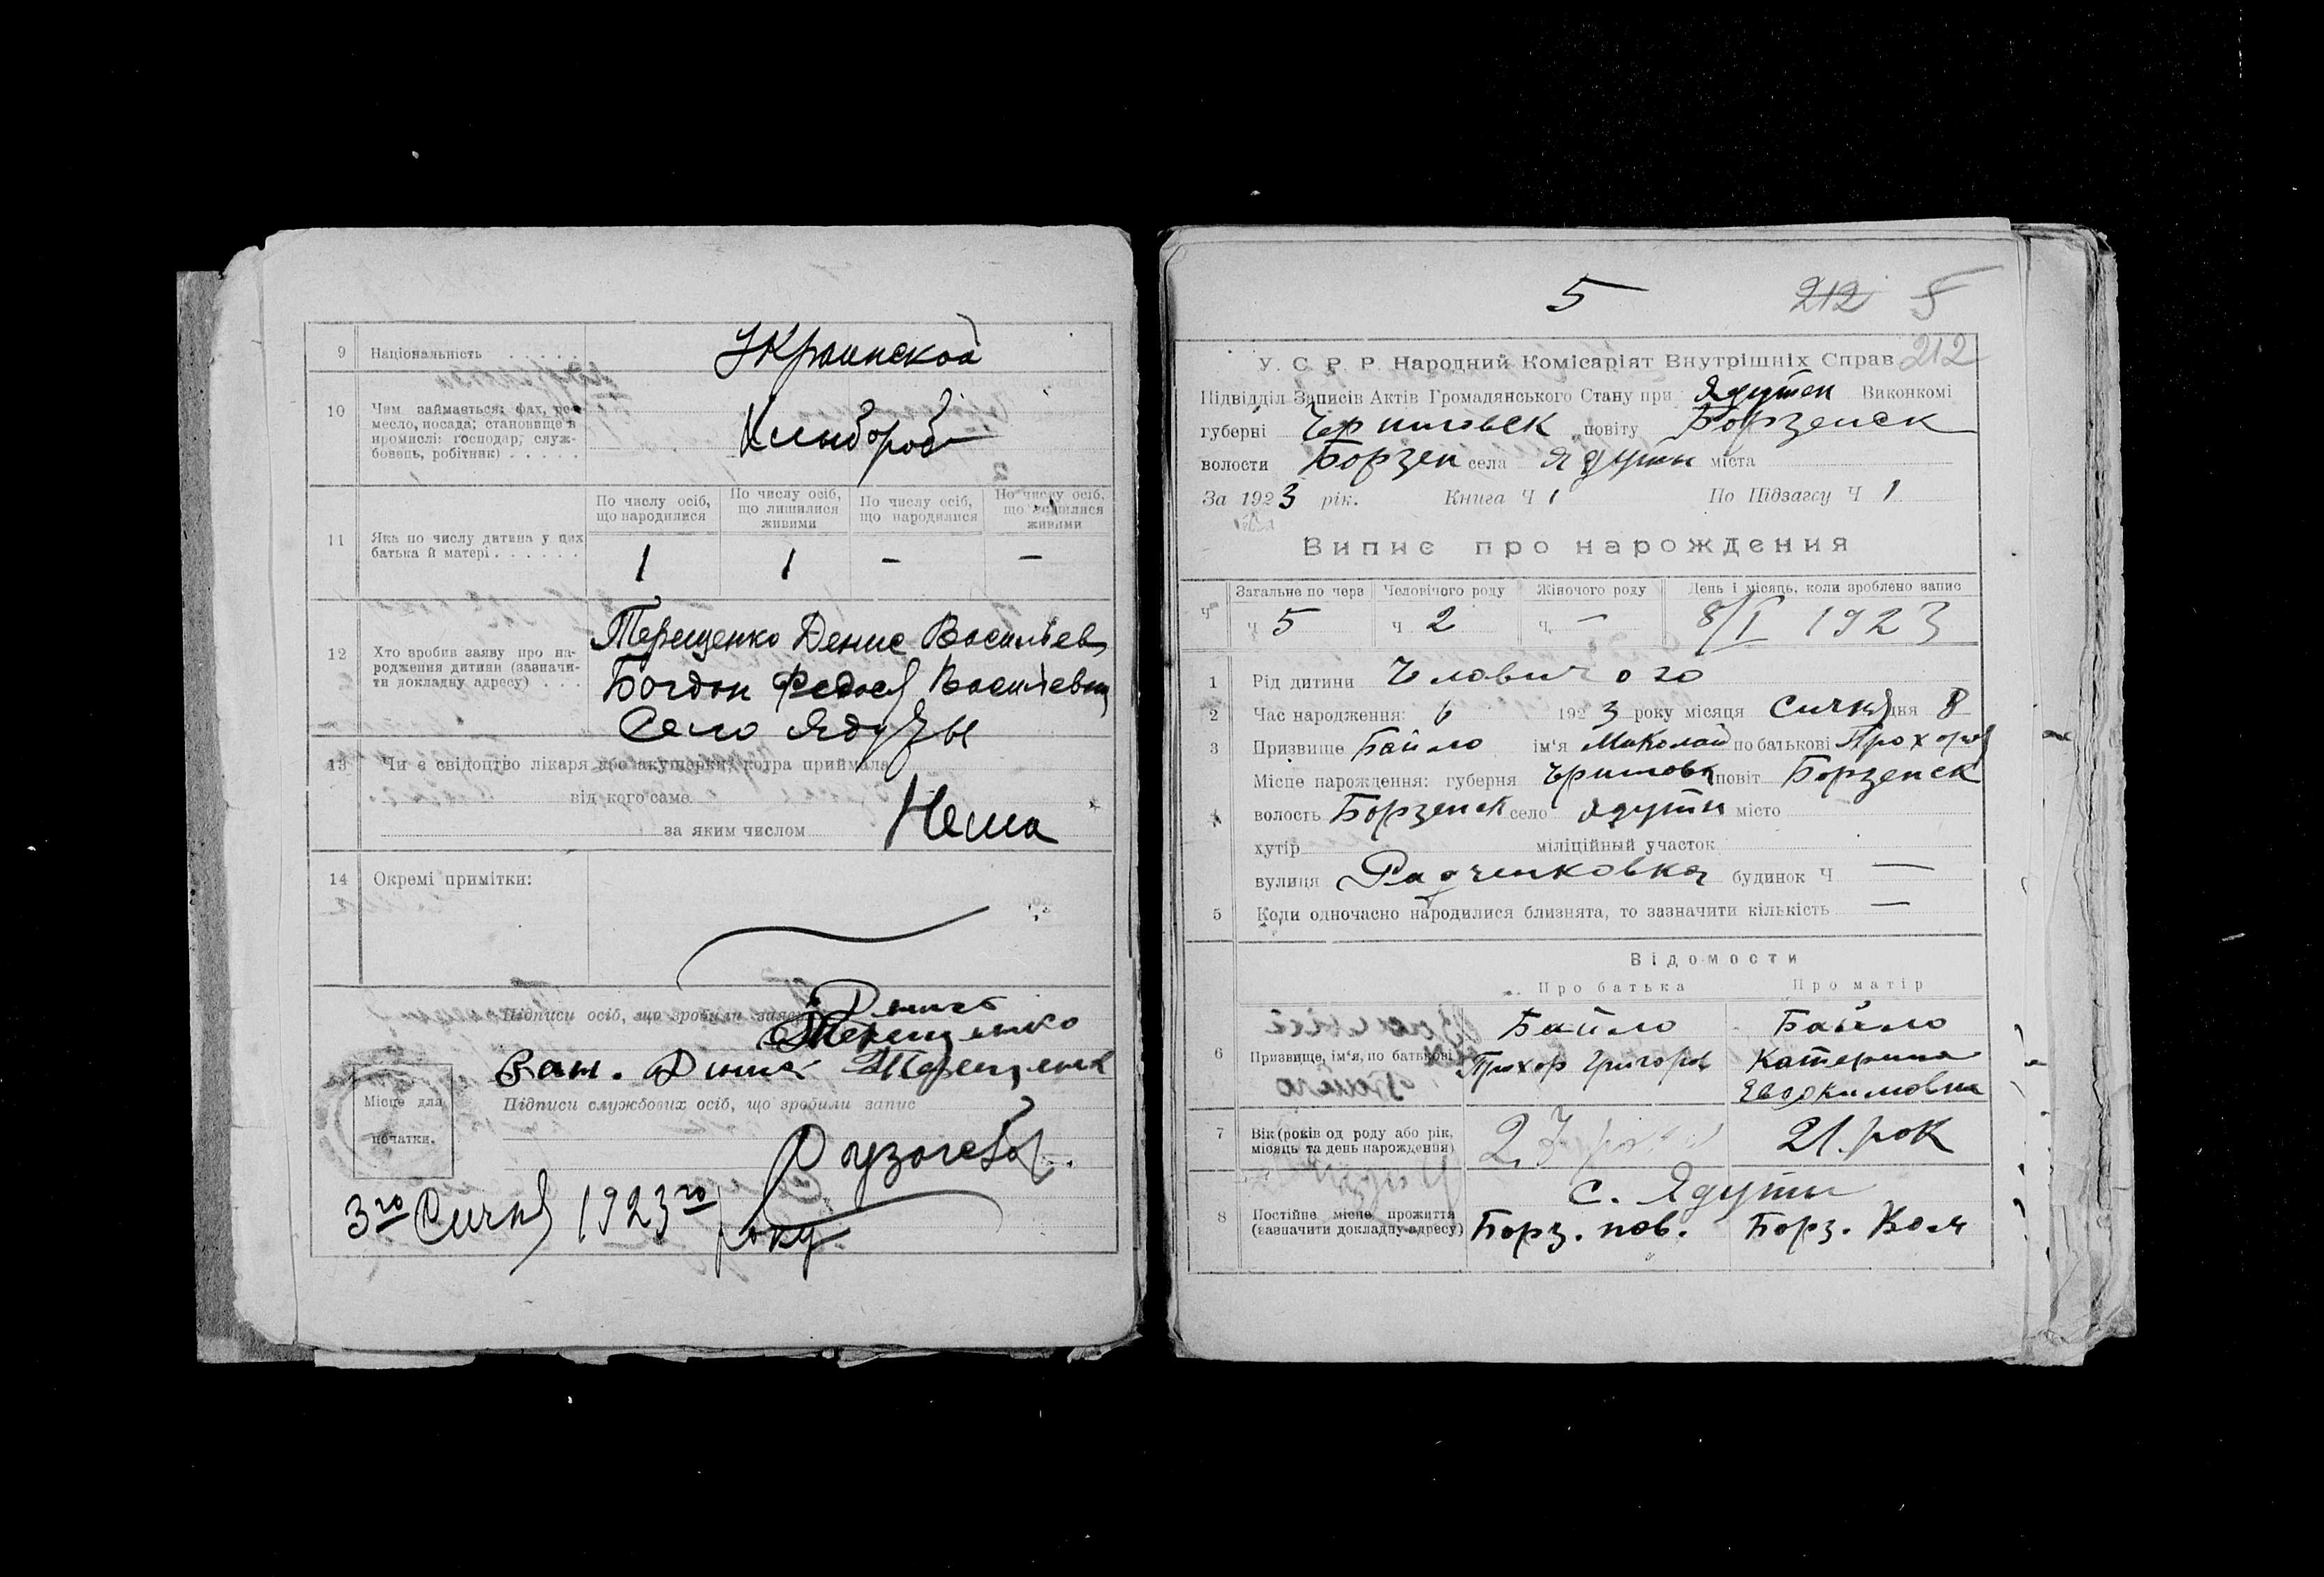 9 Національність Украинской
10 Чим займається: фах, ре-
месло, посада; становище в
промислі: господар, служ-
бовець, робітник) Хлибороб
По числу осіб, що народилися
По числу осіб, що лишилися живими
По числу осіб, що народилися
По числу осіб, що лишилися живими
11 Яка по числу дитина у цих
батька й матері 1 1 — —
12 Хто вробив заяву про на-
родження дитини (зазначи-
ти докладну адресу)
Терещенко Денис Васильев
Богдан Федосія Васильевна
Село Ядуты
13 Чи є свідоцтво лікаря або акушерки, котра приймала
від кого саме
за яким числом Нема
14 Окремі примітки:
Підписи осіб, що зробили заяву Денис
Терещенко
Денис Терещенко
Підписи службових осіб, що зробили запис
Місце для
печатки.
3го Січня 1923го року
5 212 5
212
У. С. Р. Р. Народний Комісаріят Внутрішніх Справ
Підвідділ Записів Актів Громадянського Стану при Ядутен Виконкомі
губерні Черниговск повіту Борзенск
волости Борзен села Ядути міста
За 1923 рік. Книга Ч 1 По Підзагсу Ч 1
Випис про нарождения
Загальне по черв Человічого роду Жіночого роду День і місяць, коли зроблено запис
Ч Ч 5 Ч 2 Ч — 8/I 1923
1 Рід дитини Чловичого
2 Час народження: 6 1923 року місяця Сичня дня 8
3 Призвище Байло ім'я Миколай по батькові Прохоров
Місце народження: губерня Черниговск повіт Борзенск
4 волость Борзенск село Ядути місто
хутір міліційный участок
вулиця Радченковка будинок Ч —
5 Коли одночасно народилися близнята, то зазначити кількість —
Відомости
Про батька Про матір
6 Призвище, ім'я, по батькові
Байло Байло
Прохор Григоров Катерина
Евдокимовна
7 Вік (років од роду або рік,
місяць та день нарождення) 23 21. рок
с. Ядути
8 Постійне місце прожиття
(зазначити докладну адресу) Борз. пов. Борз. Вол